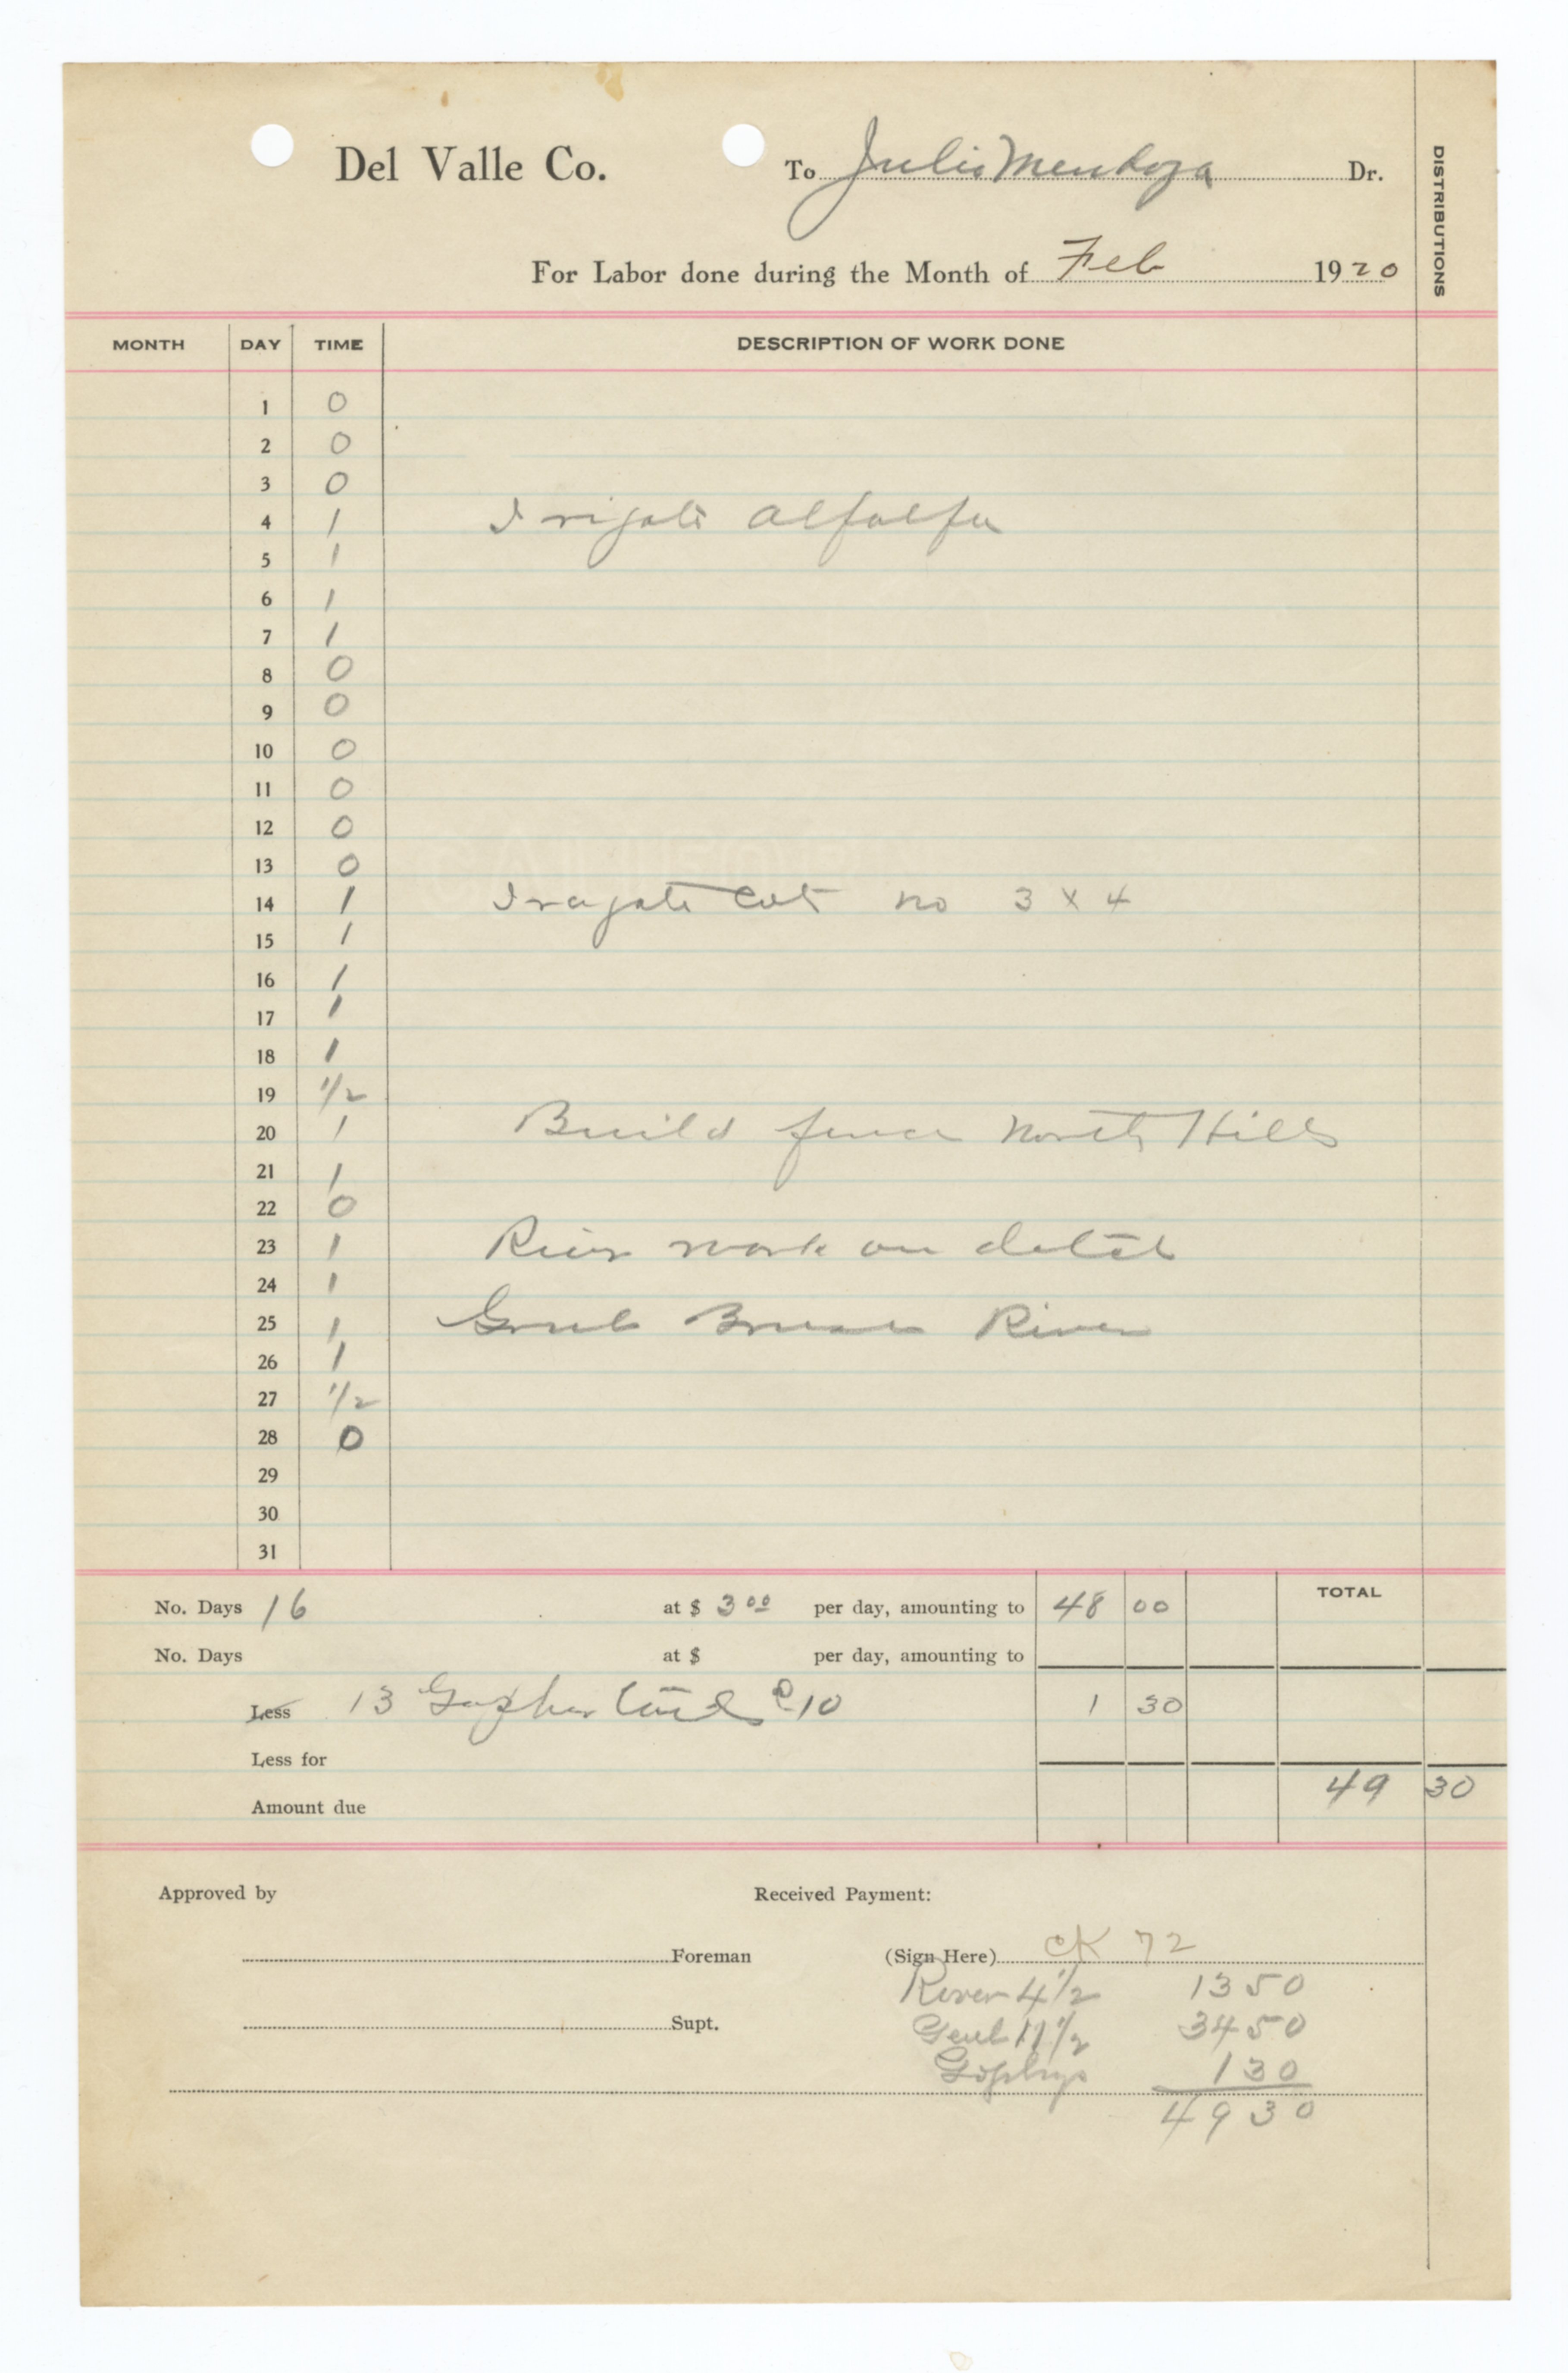 Del Valle Co. To Julio Mendoza Dr.
DISTRIBUTIONS
For Labor done during the Month of Feb 1920
MONTH DAY TIME DESCRIPTION OF WORK DONE
1 0
2 0
3 0
4 1 Irigate alfalfa
5 1
6 1
7 1
8 0
9 0
10 0
11 0
12 0
13 0
14 1 Iragate Cut no 3 x 4
15 1
16 1
17 1
18 1
19 1/2
20 1 Build fence North Hills
21 1
22 0
23 1 River work on
24 1
25 1 Grub River
26 1
27 1/2
28 0
29
30
31
No. Days 16 at $ 3 00 per day, amounting to 48 00 TOTAL
No. Days at $ per day, amounting to
Less 13 Gopher @ 10 1 30
Less for
Amount due 49 30
Approved by Received Payment:
Foreman (Sign Here) CK 72
River 4 1/2 13 50
Supt. 11 1/2 34 50
1 30
49 30